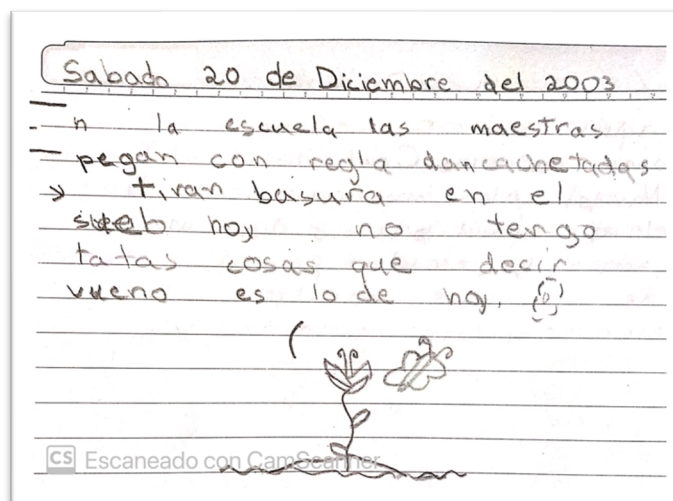 Sabado 20 de Diciembre del 2003
n la escuela las maestras
pegan con regla dan cachetadas
y tiran basura en el
hoy no tengo
tatas cosas que decir
vueno es lo de hoy.
CS Escaneado con CamScanner